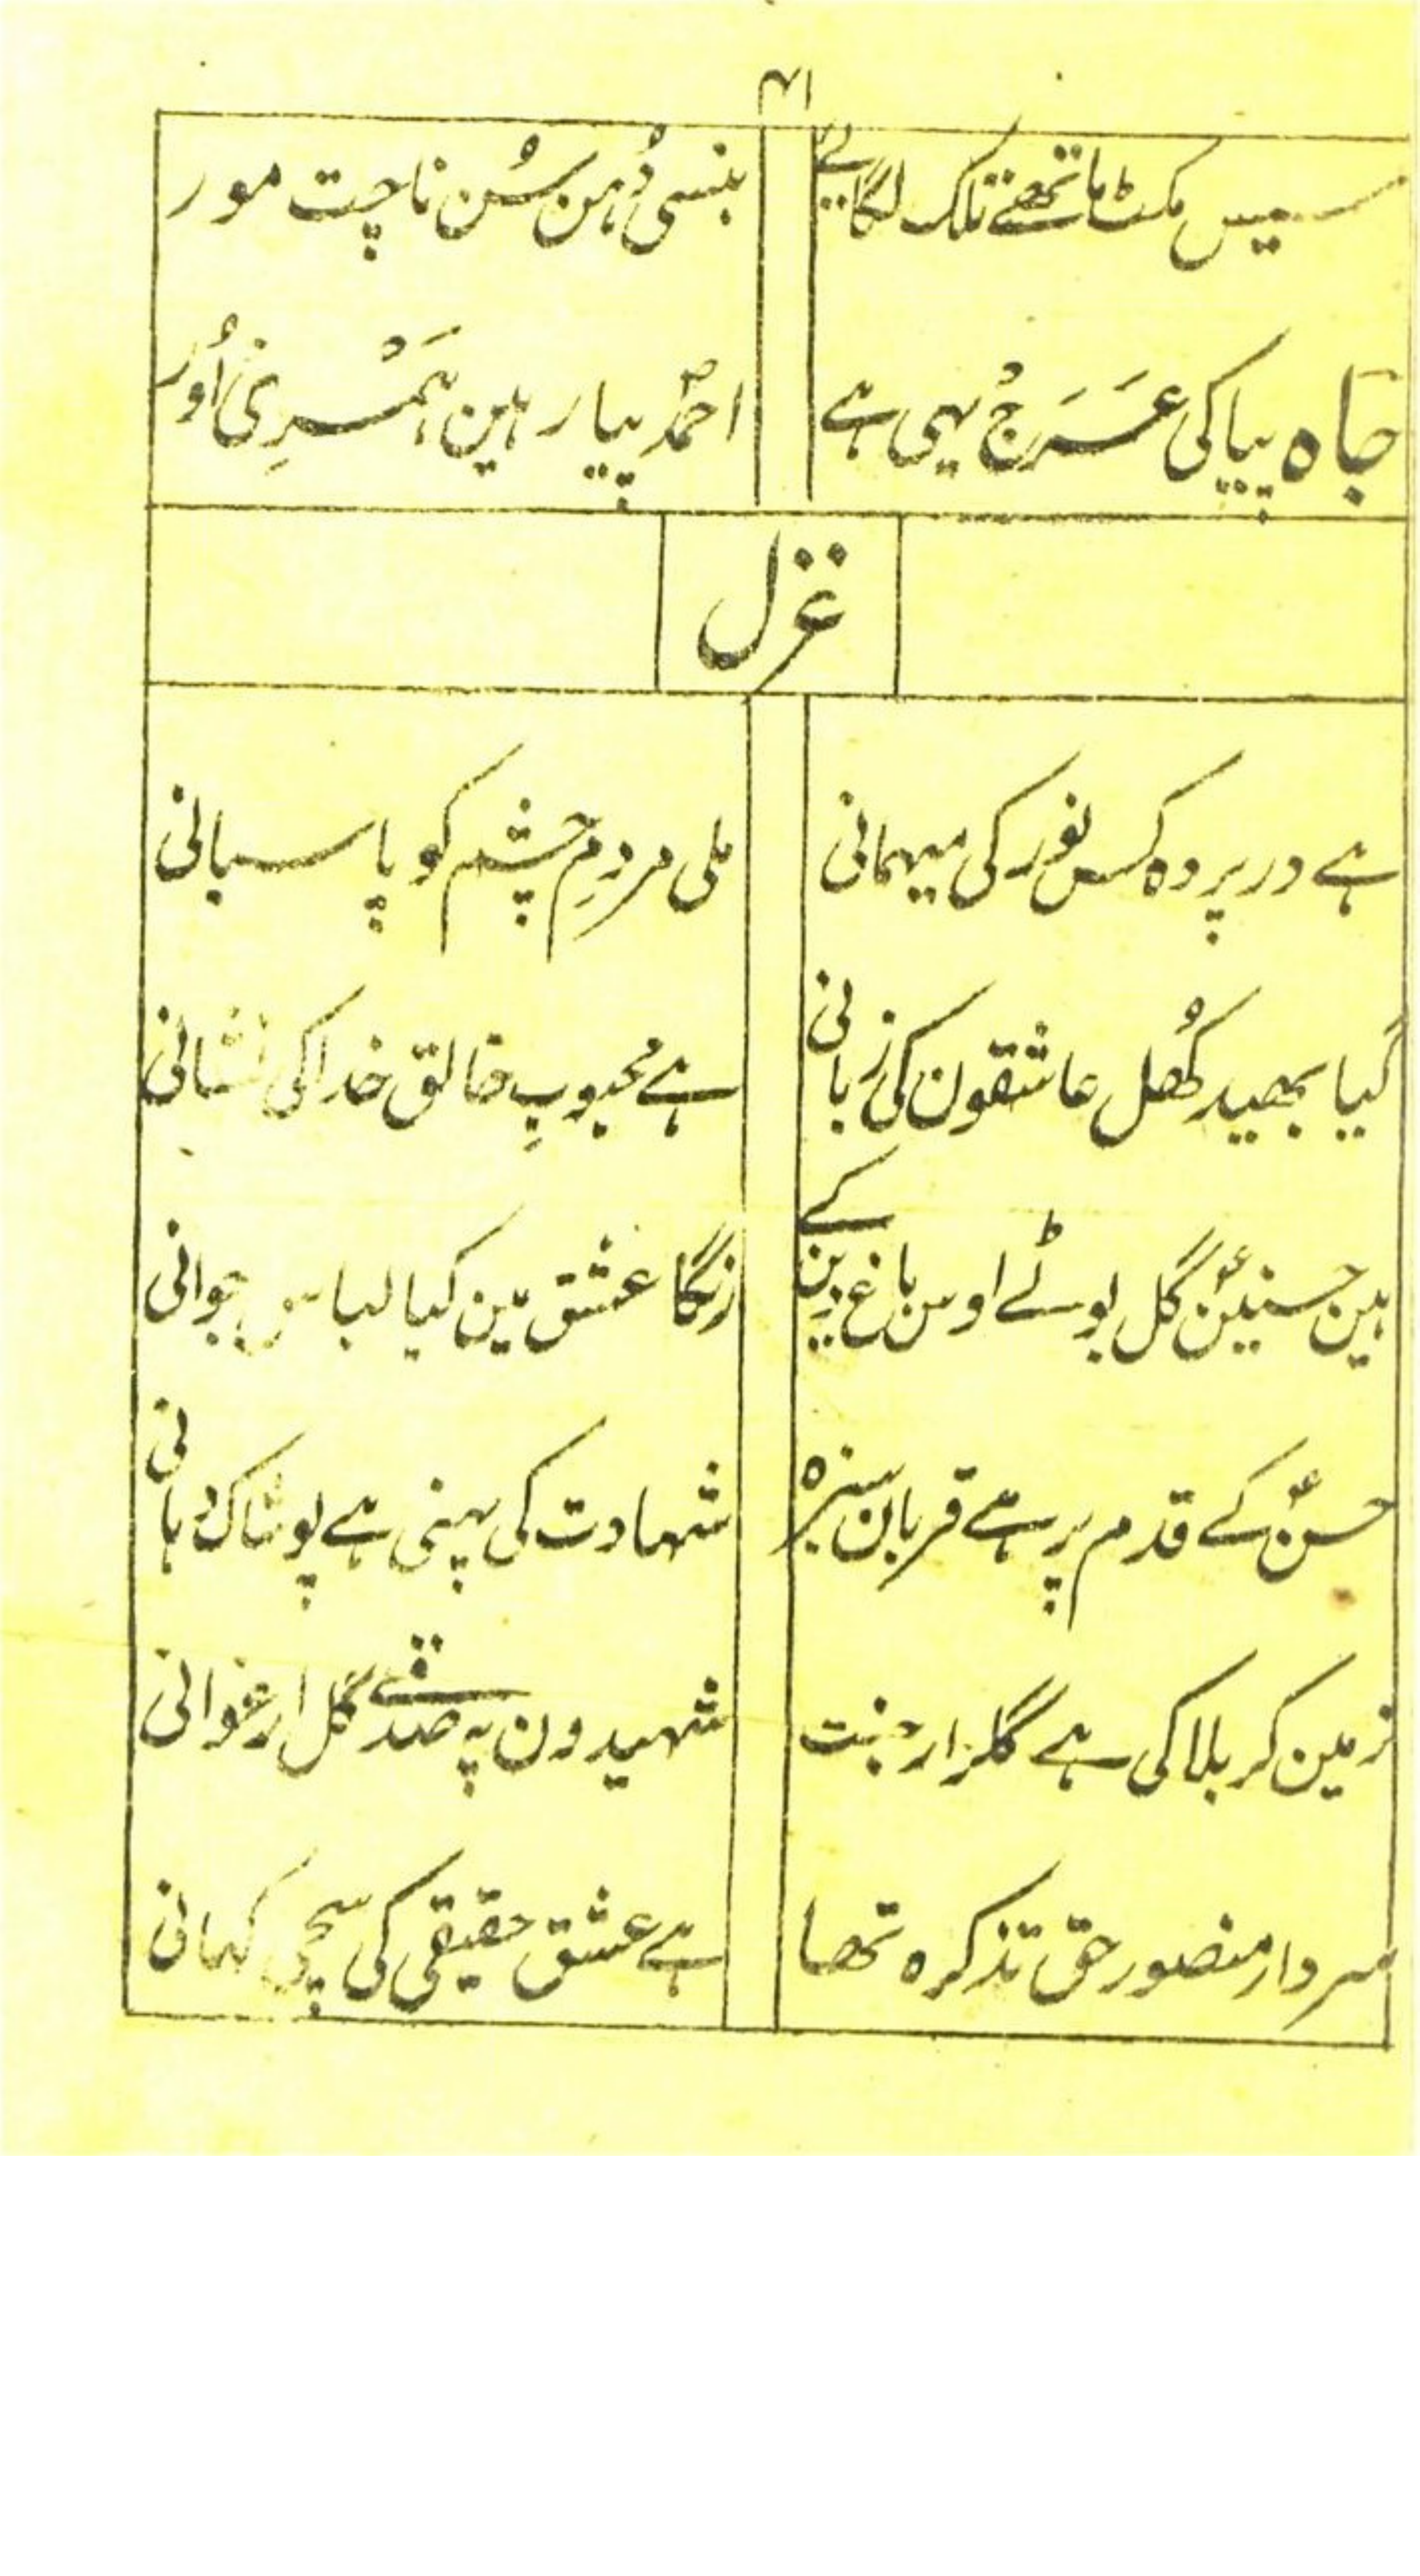 ۴۱
سیس مکٹ ماتھے تلک لگائے
بنسی دُہن سُن ناچت مور
جاہ پیا کی عَرَج یہی ہے
احمدؐ پیار ہین ہَمْرِی اُور
غزل
ہے در پردہ کس نور کی میہمانی
ملی مردمِ چشم کو پاسبانی
گیا بھید کُھل عاشقون کی زبانی
ہے محبوبِ خالق خدا کی نشانی
ہین حسنینؑ گل بوٹے اوس باغ دین کے
رنگا عشق مین کیا لباس جوانی
حسنؑ کے قدم پر ہے قربان سبزہ
شہادت کی پہنی ہے پوشاک دہانی
زمین کربلا کی ہے گلزار جنت
شہیدون پہ صدقے گل ارغوانی
سردار منصور حق تذکرہ تھا
ہے عشق حقیقی کی سچی کہانی